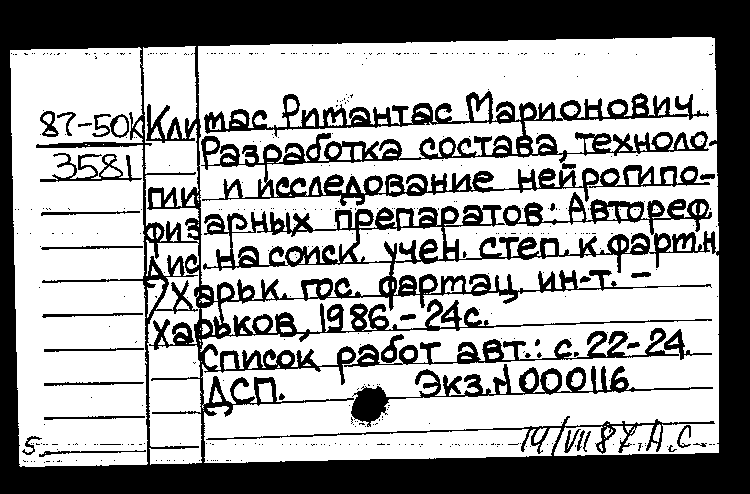 87-50К Климас, Римантас Марионович.
3581 Разработка состава, техноло-
гии и исследование нейрогипо-
физарных препаратов: Автореф.
Дис. на соиск. учен. степ. к. фарм. н.
/ Харьк. гос. фармац. ин-т. -
Харьков, 1986. - 24 с.
Список работ авт.: с. 22-24.
ДСП. Экз. N 000116.
14/VII 87. А. С.
5.